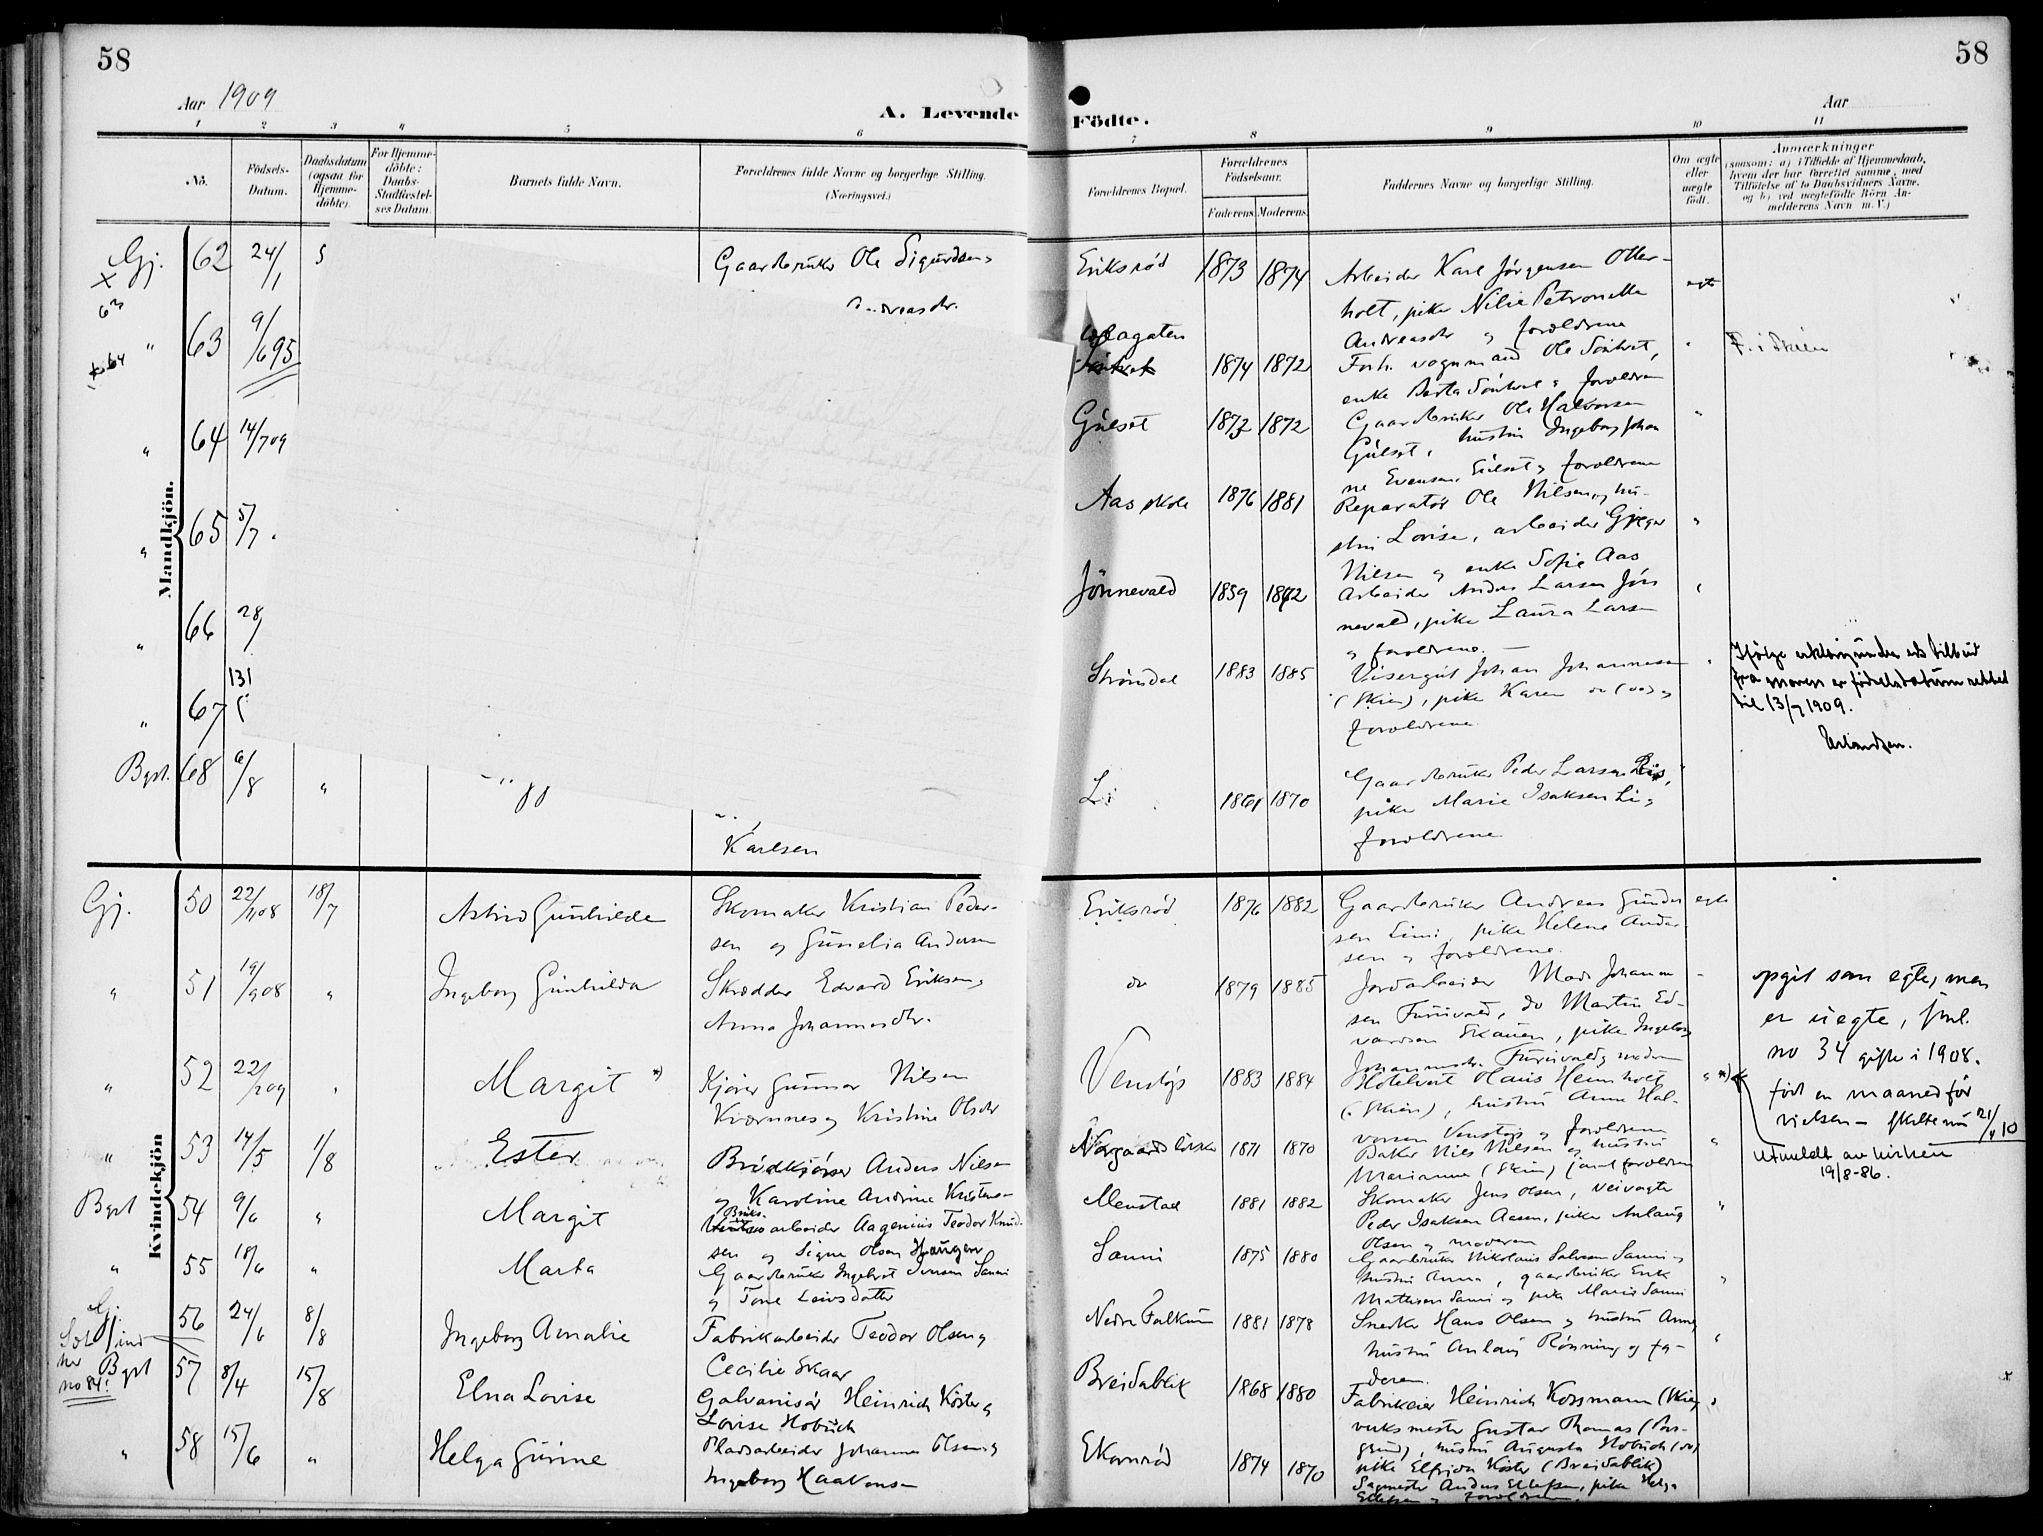 58
58
Aar 1909
Aar
A. Levende
Födte.
1 2 3 4 5 6 7 8 9 10 11
No.
Födsels-Datum.
Daabsdatum (ogsaa for Hjemme-döbte).
For Hjemme-döbte: Daabs-Stadfæstel-ses Datum.
Barnets fulde Navn.
Forældrenes fulde Navne og borgerlige Stilling.
(Næringsvei.)
Forældrenes Bopæl.
Forældrenes Födselsaar.
Faderens. Moderens.
Faddernes Navne og borgerlige Stilling.
Om ægte eller uægte födt.
Anmærkninger
(saasom: a) i Tilfælde af Hjemmedaab,
hvem der har forrettet samme, med
Tilföielse af to Daabsvidners Navne,
og b) ved uægtefödte Börn An-
melderens Navn m. V.)
Mandkjön.
Gj. 62 24/1 Gaardbruker Ole Sigurdsen Eriksrød 1873 1874 Arbeider Karl Jørgensen Otter-
holt, pike Nilie Petronella
Andreasdr og forældrene
63 9/6 95 1874 1872 Forh. vognmand Ole
enke Berta forældrene
F. i Skien
64 14/7 09 Gulset 1873 1872 Gaardbruker Ole Halvorsen
Gulset, hustru Ingeborg Johan
ne Evensen Gulset og forældrene
65 5/7 Aas skole 1876 1881 Reparatør Ole Nilsen og hu-
stru Lovise, arbeider
Nilsen og enke Sofie Aas
66 28/ Jønnevald 1859 1862 Arbeider Anders Larsen Jøn
nevald, pike Laura Larsen
og forældrene.
67 13/ Strømdal 1883 1885 Visergut Johan Johannesen
(Skien), pike Karen do (do) og
forældrene
Ifølge erklæring under eds tilbud
fra moren er fødselsdatum rettet
til 13/7 1909.
Erlandsen.
Bgst. 68 6/8 " Karlsen Li 1861 1870 Gaardbruker Peder Larsen
pike Marie Isaksen Li og
forældrene
Kvindekjön
Gj. 50 22/11 08 18/7 Astrid Gunhilde Skomaker Kristian Peder-
sen og Gunelia Andersen Eriksrød 1876 1882 Gaardbruker Andreas Gunder
sen Limi, pike Helene Ander
sen og forældrene. egte
" 51 19/9 08 " Ingeborg Gunhilda Skrædder Edvard Eriksen og
Anna Johannesdtr. do 1879 1885 Jordarbeider Mads Johanne
sen Furuvald, do Martin Ed-
vardsen Skauen, pike Ingeborg
Johannesdr. Furuvald og moderen
" 52 22/2 09 Margit *) Kjører Gunnar Nilsen
Kværnnes og Kristine Olsdtr Venstøp 1883 1884 Hotelvert Olaus Heimholt
(Skien), hustru Anne Hal-
vorsen Venstøp og forældrene
opgit som egte, men
er uegte, jvnl.
no 34 gifte i 1908.
født en maaned før
vielsen - skilte nu 21/4 10
utmeldt av kirken
19/8-86.
" 53 14/5 1/8 Ester Brødkjører Anders Nilsen
og Karoline Andrine 1871 1870 Baker Nils Nilsen og hustru
Marianne (Skien) samt forældrene
Bgst 54 9/6 " Margit Bruks-arbeider Aagenius Teodor Knud-
sen og Signe Olsen Haugen Menstad 1881 1882 Skomaker Jens Olsen, veivogter
Peder Isaksen Aasen, pike Anlaug
Olsen og moderen
" 55 18/6 " Marta Gaardbruker Ingebret Iversen Sanni
og Tone Leivsdatter Sanni 1875 1880 Gaardbruker Nikolaus Salvesen Sanni og
hustru Anna, gaardbruker Erik
Mathisen Sanni og pike Marie Sanni
Gj. 56 24/6 8/8 Ingeborg Amalie Fabrikarbeider Teodor Olsen og
Cecilie Skaar Nedre Falkum 1881 1878 Snedker Hans Olsen og hustru Anne,
hustru Anlaug Rønning og fa-
deren.
Bgst 57 8/4 15/8 Elna Lovise Galvanisør Heinrich Köster og
Lovise Hobuch Breidablik 1868 1880 Fabrikeier Heinrich Kossmann (Skien),
verksmester Gustav Thomas (Pors-
grund), hustru Augusta Hobuch (do)
pike Elfrida Köster (Breidablik)
no 84!
" 58 15/6 " Helga Gurine Pladsarbeider Johannes Olsen og
Ingeborg Haakonsen Ekornrød 1874 1870 Sagmester Anders Ellefsen, pike Helga
Ellefsen og forældrene.